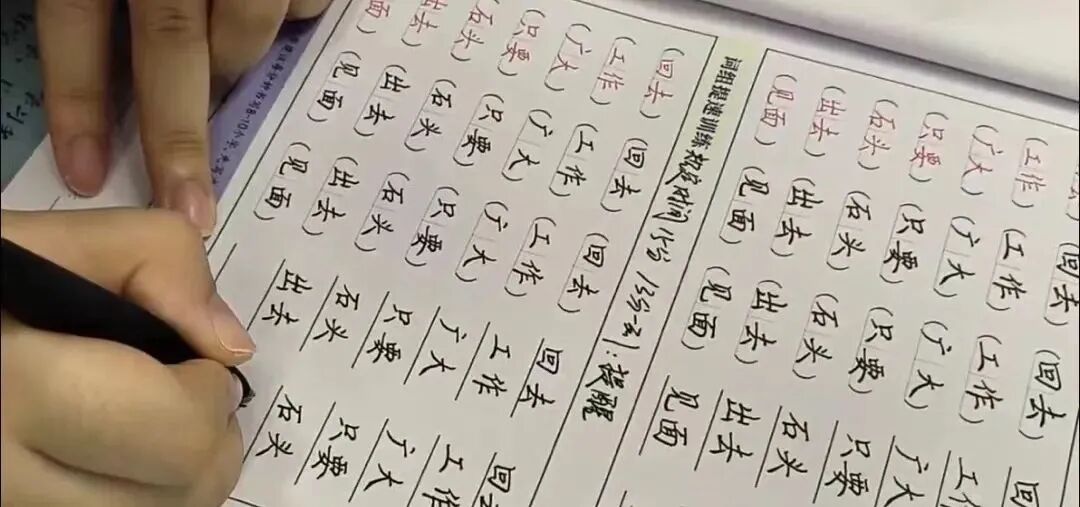 去) (回去) (回去) 回
(工作) (工作) (工作) 工作
(广大) (广大) (广大) 广大
(只要) (只要) (只要) 只要
(石头) (石头) (石头) 石头
(出去) (出去) (出去) 出去
(见面) (见面) (见面) 见面
词组提速训练 规定时间 提醒
(回去) (回去) (回去) 回去 回去
(工作) (工作) (工作) 工作 工作
(广大) (广大) (广大) 广大 广大
(只要) (只要) (只要) 只要 只要
(石头) (石头) (石头) 石头 石头
出去) (出去) (出去) 出去
面) (见面) (见面)